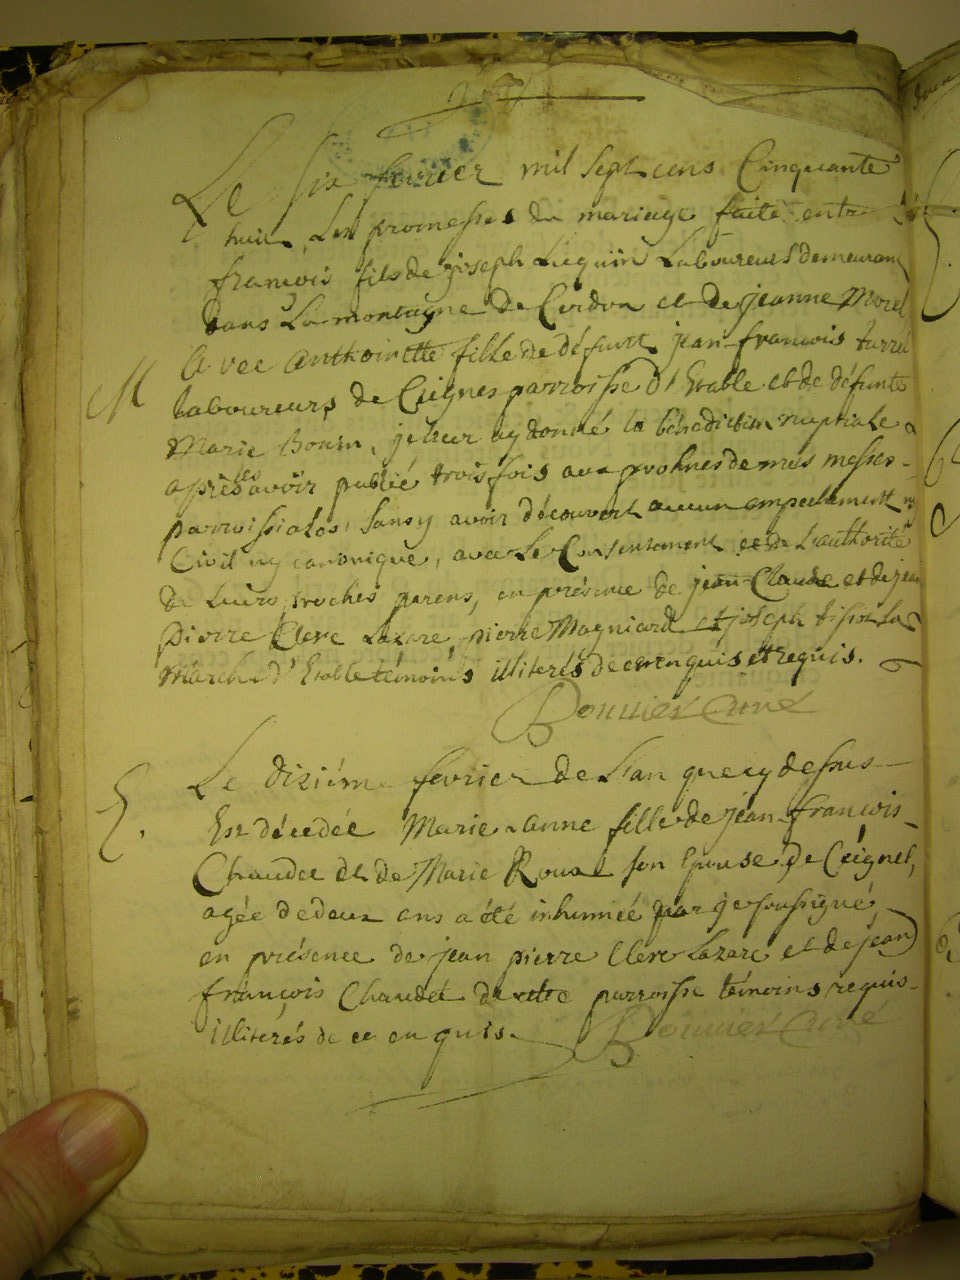 Le six fevrier mil sept cens Cinquante
huit Les promesses du mariage faite entre
francois fils de joseph Luquin Laboureurs demeurant
dans La montagne de Cerdon et de jeanne Morel
Avec anthoinette fille de défunt jean-francois turrel
Laboureurs de Ceignes parroisse d'Etable et de défunte
Marie Bonin, je leur ay donné la bénédiction nuptiale
après les avoir publié trois fois aux prohnes de mes messes
parroissiales, sans y avoir découvert aucun empechement ny
Civil ny canonique, avec Le Consentement et de L'authorité
de Leurs proches parens, en présence de jean-Claude et de jean
pierre Clerc Lazare, pierre Magniard et joseph tison La
Marche d'Etable témoins illiterés de ce enquis et requis.
Bonnier Curé
M
Le diziém fevrier de L'an que cy dessus
Est décedée Marie-anne fille de jean-francois
Chaudet et de Marie Roux son Epouse de Ceignes,
agée de deux ans a été inhumée par je soussigné
en présence de jean pierre Clerc Lazare et de jean
françois Chaudet de cette parroisse témoins requis
illiterés de ce enquis.
Bonnier Curé
S.